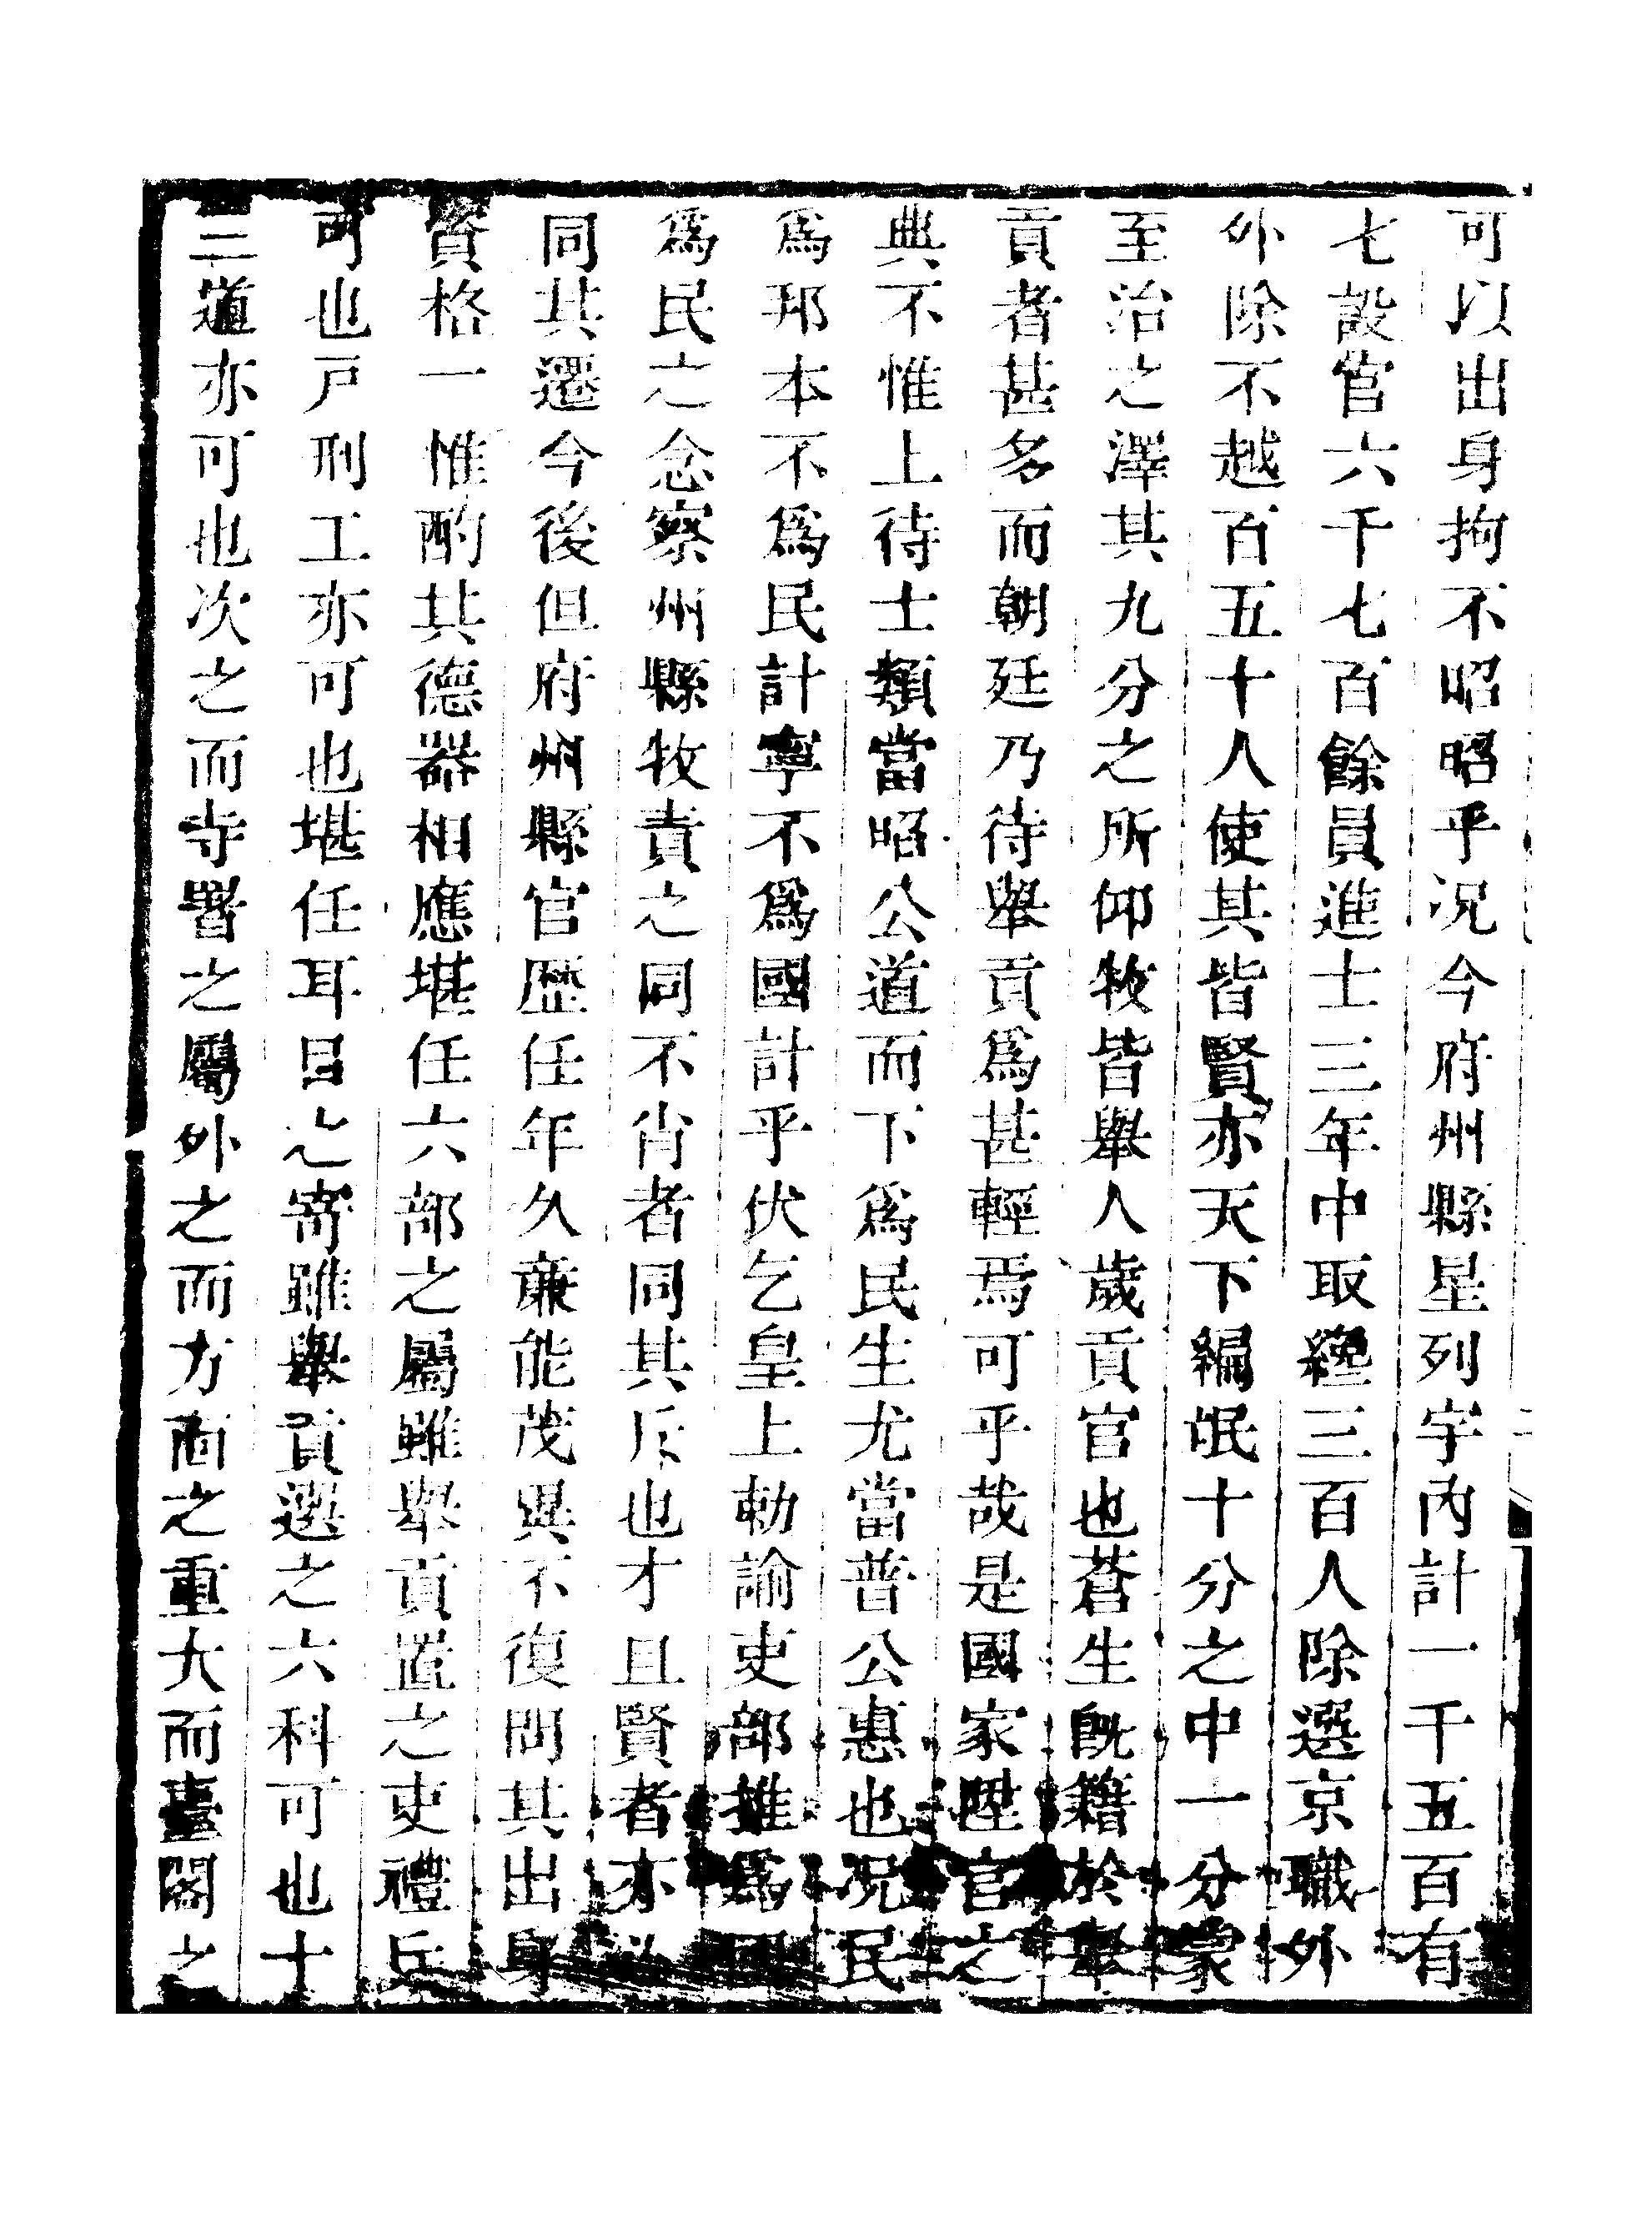 可以出身拘不昭昭乎况今府州縣星列宇內計一千五百有
七設官六千七百餘員進士三年中取纔三百人除選京職外
外除不越百五十人使其皆賢亦天下編氓十分之中一分蒙
至治之澤其九分之所仰牧皆舉人歲貢官也蒼生旣籍於舉
貢者甚多而朝廷乃待舉貢爲甚輕焉可乎哉是國家陞官之
典不惟上待士類當昭公道而下爲民生尤當普公惠也况民
爲邦本不爲民計寧不爲國計乎伏乞皇上勅諭吏部推爲國
爲民之念察州縣牧責之同不肖者同其斥也才且賢者亦必
同其遷今後但府州縣官歷任年久亷能茂異不復問其出身
資格一惟酌其德器相應堪任六部之屬雖舉貢置之吏禮兵
可也戶刑工亦可也堪任耳目之寄雖舉貢選之六科可也十
三道亦可也次之而寺署之屬外之而方面之重大而臺閣之